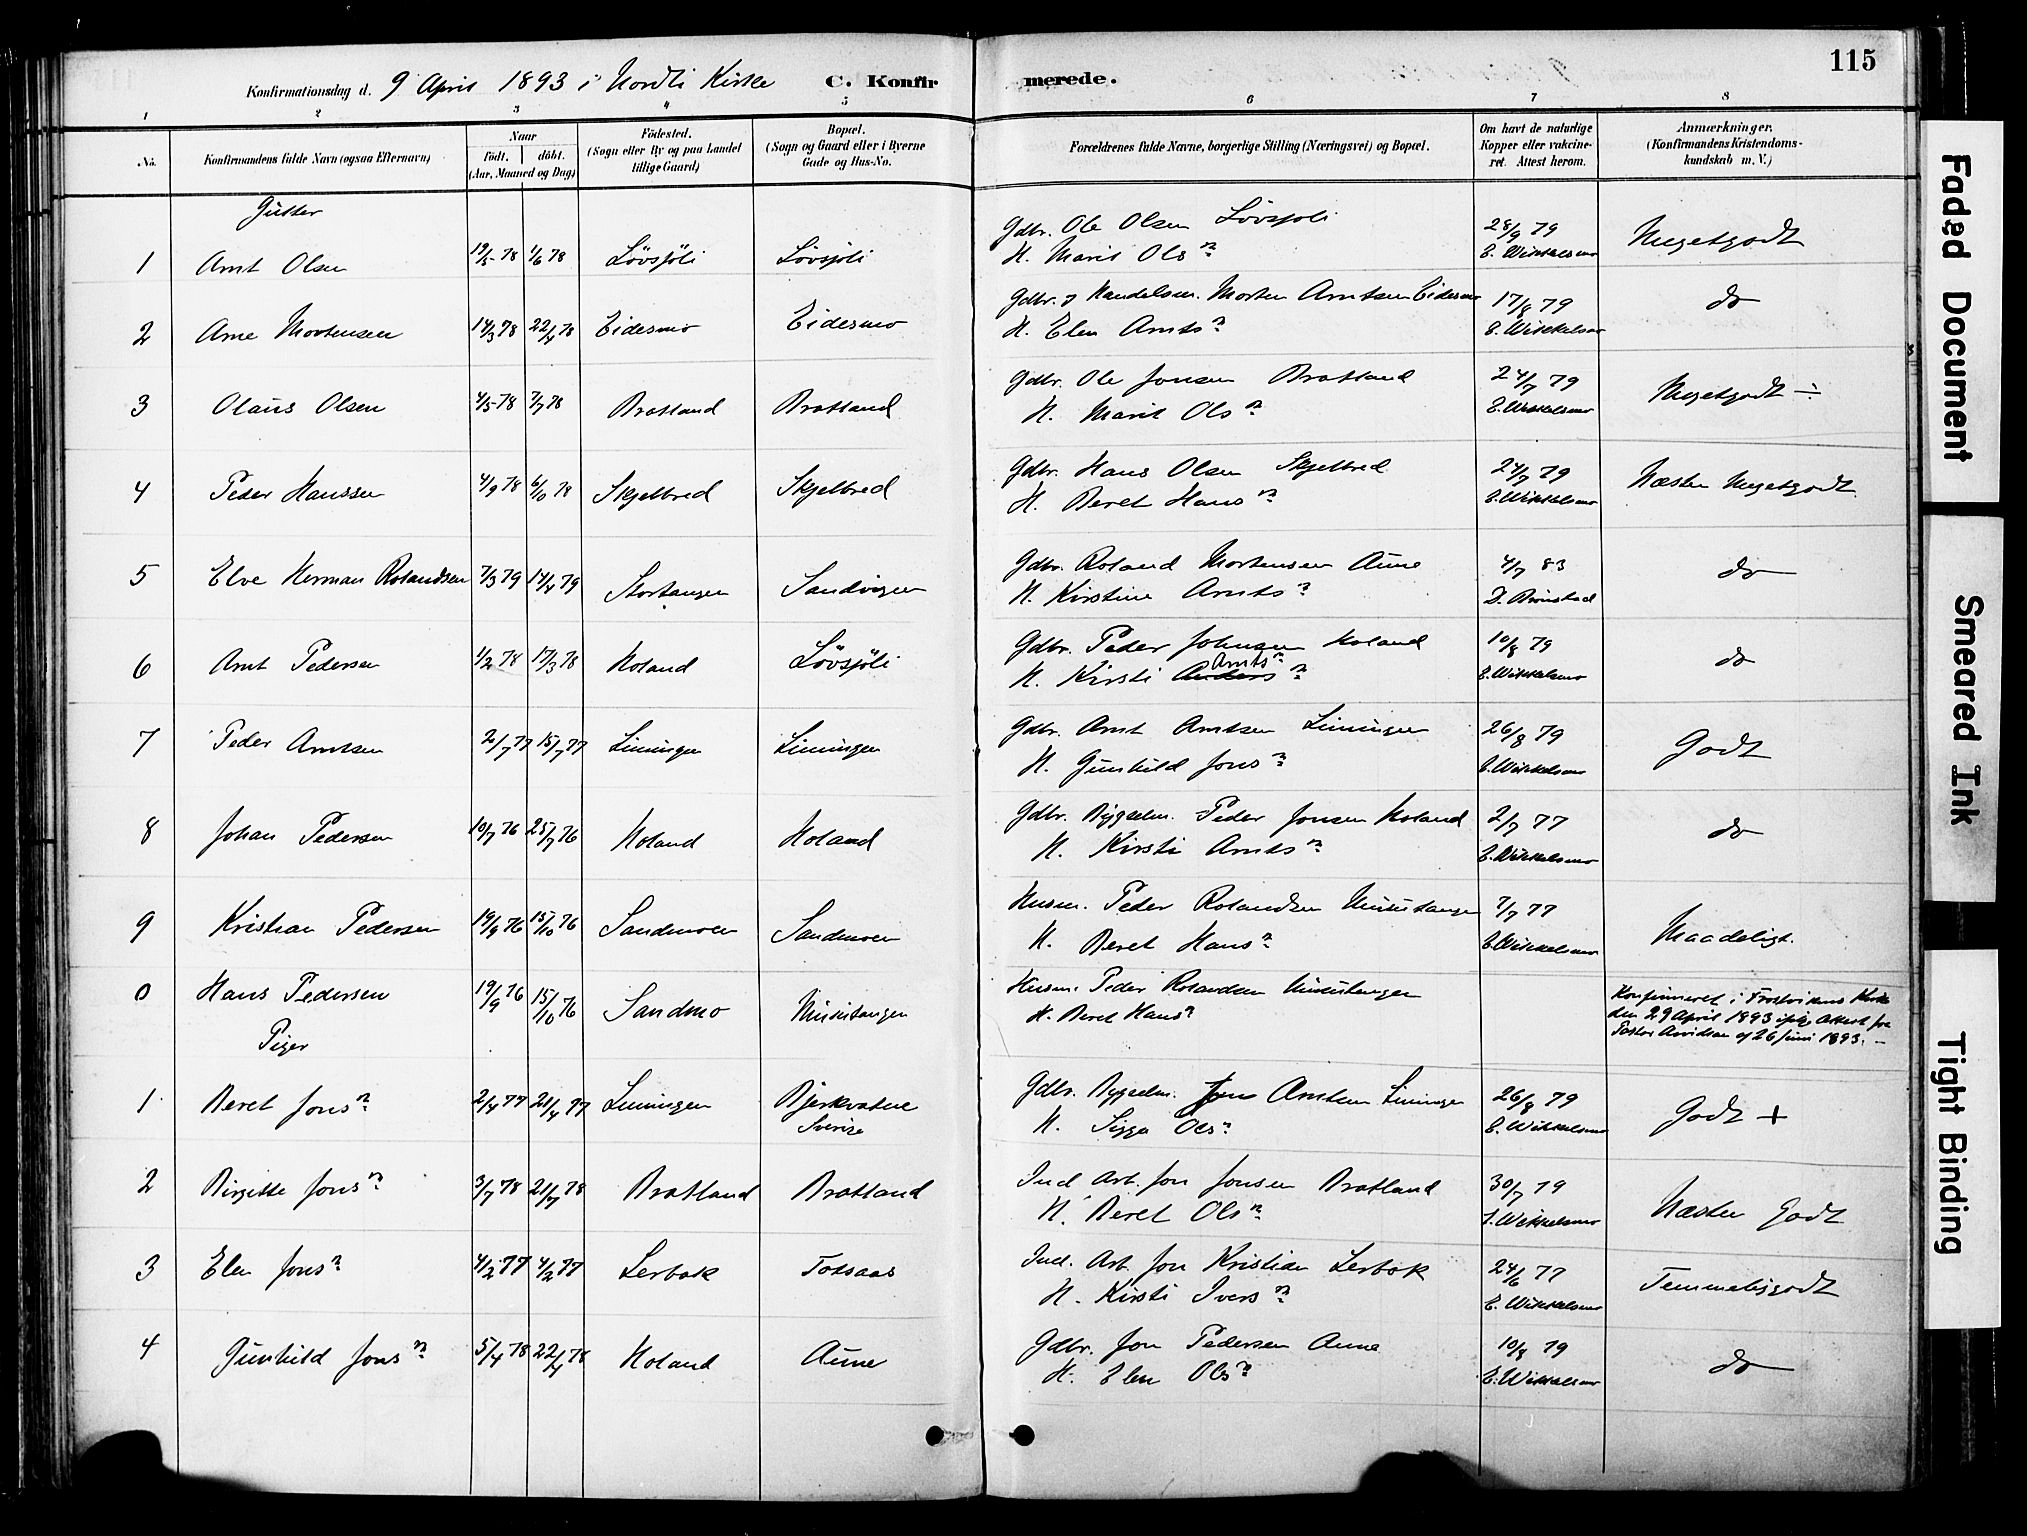 115
Konfirmationsdag d. 9 April 1893 i Nordli Kirke C. Konfirmerede.
1 2 3 4 5 6 7 8
No. Konfirmandens fulde Navn (ogsaa Efternavn) Naar født. døbt. (Aar, Maaned og Dag) Fødested. (Sogn eller By og paa Landet tillige Gaard) Bopæl. (Sogn og Gaard eller i Byerne Gade og Hus-No. Forældrenes fulde Navne, borgerlige Stilling (Næringsvei) og Bopæl. Om havt de naturlige Kopper eller vakcineret. Attest herom. Anmærkninger. (Konfirmandens Kristendomskundskab m. V.)
Gutter
1 Arnt Olsen 19/5 78 1/6 78 Lövsjöli Lövsjöli Gdbr. Ole Olsen Lövsjöli 28/9 79 Megetgodt
H. Marit Ols n E. Wikkelsmo
2 Arne Mortensen 14/3 78 22/4 78 Eidesmo Eidesmo Gdbr. & Handelsm. Morten Arntsen Eidesmo 17/8 79 do
H. Elen Arnts n E. Wikkelsmo
3 Olaus Olsen 4/5 78 7/7 78 Bratland Bratland Gdbr. Ole Jonsen Bratland 24/7 79 Megetgodt ÷
H. Marit Ols n E. Wikkelsmo
4 Peder Hanssen 4/9 78 6/10 78 Skjelbred Skjelbred Gdbr. Hans Olsen Skjelbred 24/7 79 Næsten Megetgodt
H. Beret Hans n E. Wikkelsmo
5 Elve Herman Rolandsen 7/3 79 14/4 79 Stortangen Sandvigen Gdbr. Roland Mortensen Aune 4/7 83 do
H. Kirstine Arnts n
6 Arnt Pedersen 1/2 78 17/3 78 Holand Lövsjöli Gdbr. Peder Johnsen Holand 10/8 79 do
H. Kirsti Anders Arnts n E. Wikkelsmo
7 Peder Arntsen 2/7 77 15/7 77 Limingen Limingen Gdbr. Arnt Arntsen Limingen 26/8 79 Godt
H. Gunhild Jons n E. Wikkelsmo
8 Johan Pedersen 10/7 76 25/7 76 Holand Holand Gdbr. Bygselm. Peder Jonsen Holand 2/7 77 do
H. Kirsti Arnts n E. Wikkelsmo
9 Kristian Pedersen 19/9 76 15/10 76 Sandmoen Sandmoen Husm. Peder Rolandsen 7/7 77 Maadeligt.
H. Beret Hans n E. Wikkelsmo
0 Hans Pedersen 19/9 76 15/10 76 Sandmo Husm. Peder Rolandsen Konfirmeret i Frostvikens Kirke
H. Beret Hans n den 29 April 1893 ifölge Attest fra
Pastor Arvidson af 26 Juni 1893. –
Piger
1 Beret Jons n 2/4 77 21/4 77 Limingen Bjerkvatne Sverige Gdbr. Bygselm. Jon Arntsen Limingen 26/8 79 Godt +
H. Sigga Ols n E. Wikkelsmo
2 Birgitte Jons n 3/7 78 21/7 78 Bratland Bratland Ind. Arb. Jon Jonsen Bratland 30/7 79 Næsten Godt
H. Beret Ols n E. Wikkelsmo
3 Elen Jons n 4/2 77 4/2 77 Lerbak Totsaas Ind. Arb. Jon Kristian Lerbak 24/6 77 Temmeligodt
H. Kirsti Ivers n E. Wikkelsmo
4 Gunhild Jons n 5/4 78 22/4 78 Holand Aune Gdbr. Jon Pedersen Aune 10/8 79 do
H. Elen Ols n E. Wikkelsmo
Faded Document
Smeared Ink
Tight Binding